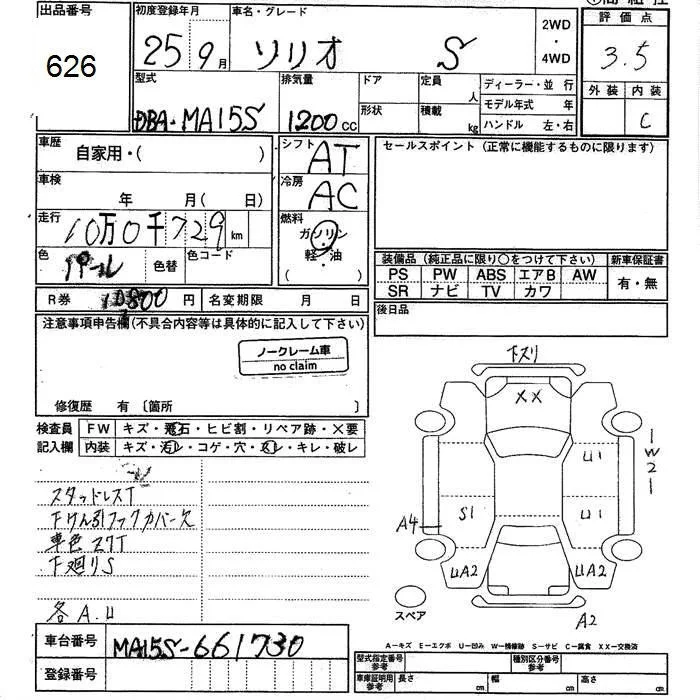 出品番号
626
初度登録年月
25 9月
車名・グレード
ソリオ S
2WD
・
4WD
評価点
3.5
外装 内装
C
型式
DBA-MA15S
排気量
1200cc
ドア
形状
定員
人
積載
kg
ディーラー・並行
モデル年式 年
ハンドル 左・右
車歴
自家用・( )
シフト
AT
セールスポイント(正常に機能するものに限ります)
車検
年 月( 日)
冷房
AC
走行
10万0千729km
燃料
ガソリン
軽・油
( )
色
パール
色替
色コード
装備品(純正品に限り○をつけて下さい)
新車保証書
PS PW ABS エアB AW
SR ナビ TV カワ
有・無
R券 10800円
名変期限 月 日
後日品
注意事項申告欄(不具合内容等は具体的に記入して下さい)
ノークレーム車
no claim
修復歴 有〔箇所 〕
検査員
記入欄
FW キズ・飛石・ヒビ割・リペア跡・×要
内装 キズ・汚レ・コゲ・穴・スレ・キレ・破レ
スタッドレスT
下廻りS
各A.U
下スリ
XX
U1
W2
S1
U1
A4
UA2
UA2
A2
スペア
A−キズ E−エクボ U−凹み W−補修跡 S−サビ C−腐食 XX−交換済
車台番号
MA15S-661730
登録番号
型式指定番号
参考
種別区分番号
参考
車庫証明用
参考
長さ
幅
高さ
cm
cm
cm